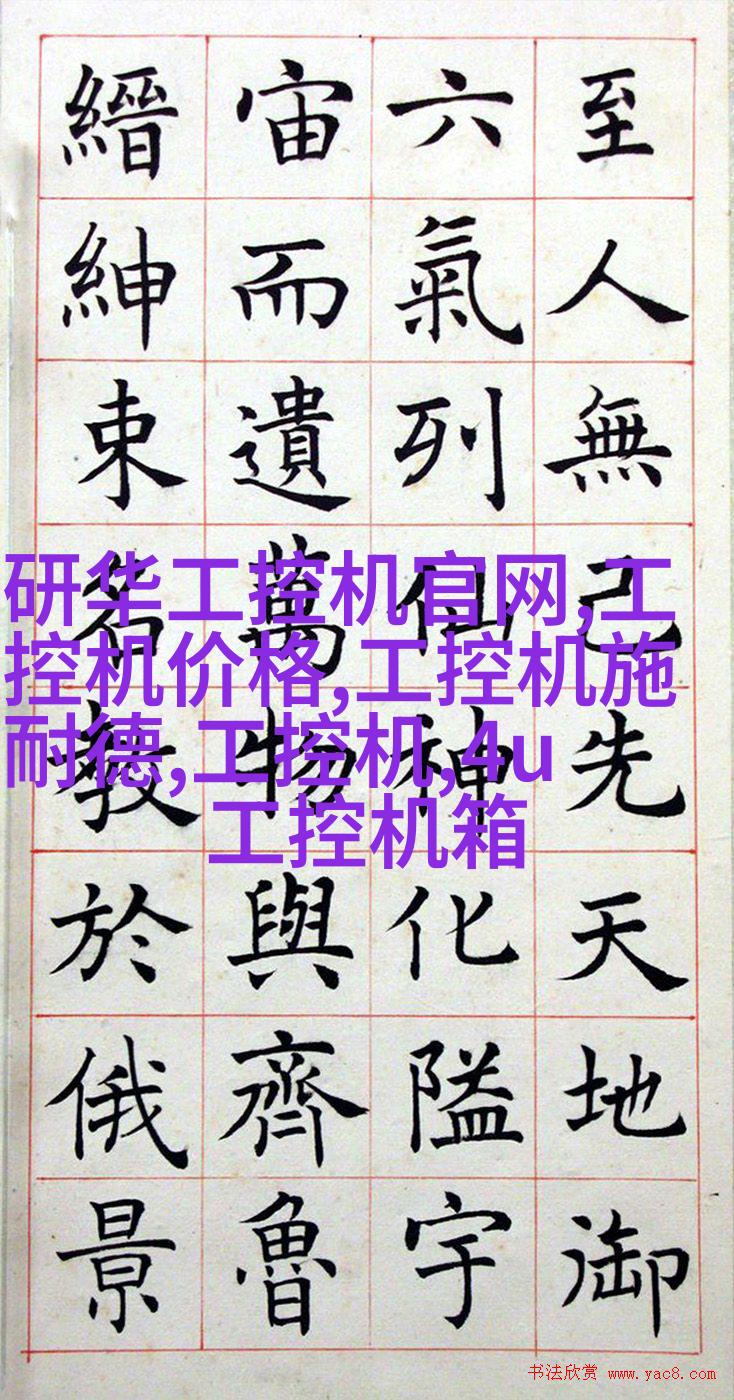 至人無己先天地御
六氣列仙神化隘宇
宙而遺萬物與齊魯
縉紳束名教於俄景
研华工控机官网,工
控机价格,工控机施
耐德,工控机,4u
工控机箱
书法欣赏 www.yac8.com